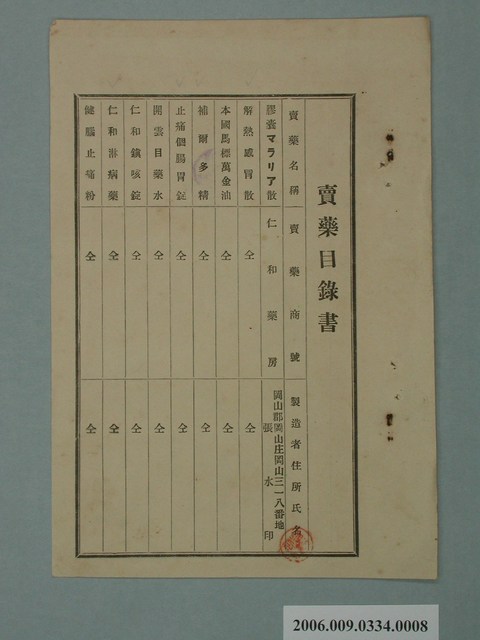 賣藥目錄書
賣藥名稱 賣藥商號 製造者住所氏名
膠囊マラリア散 仁和藥房 岡山郡岡山庄岡山三一八番地 張水印
解熱感冒散 仝 仝
本國馬標萬金油 仝 仝
補爾多精 仝 仝
止痛個腸胃錠 仝 仝
開雲目藥水 仝 仝
仁和鎮咳錠 仝 仝
仁和淋病藥 仝 仝
健腦止痛粉 仝 仝
2006.009.0334.0008